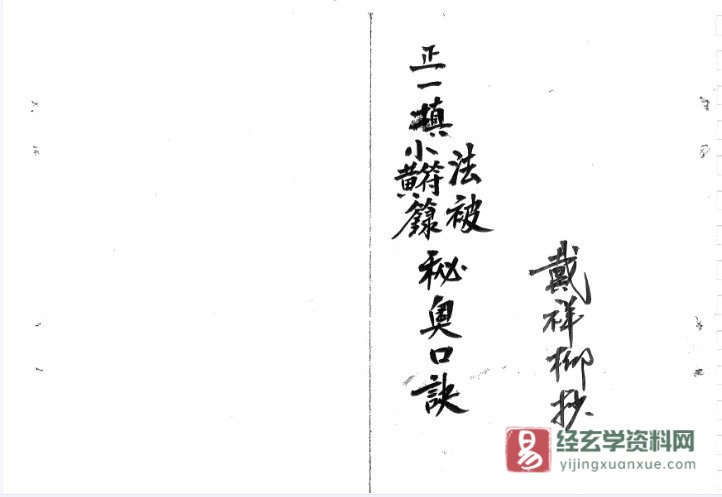 正一填
法被
小符黄籙
秘奥口訣
戴祥柳抄
易
经玄学资料网
yijingxuanxue.com